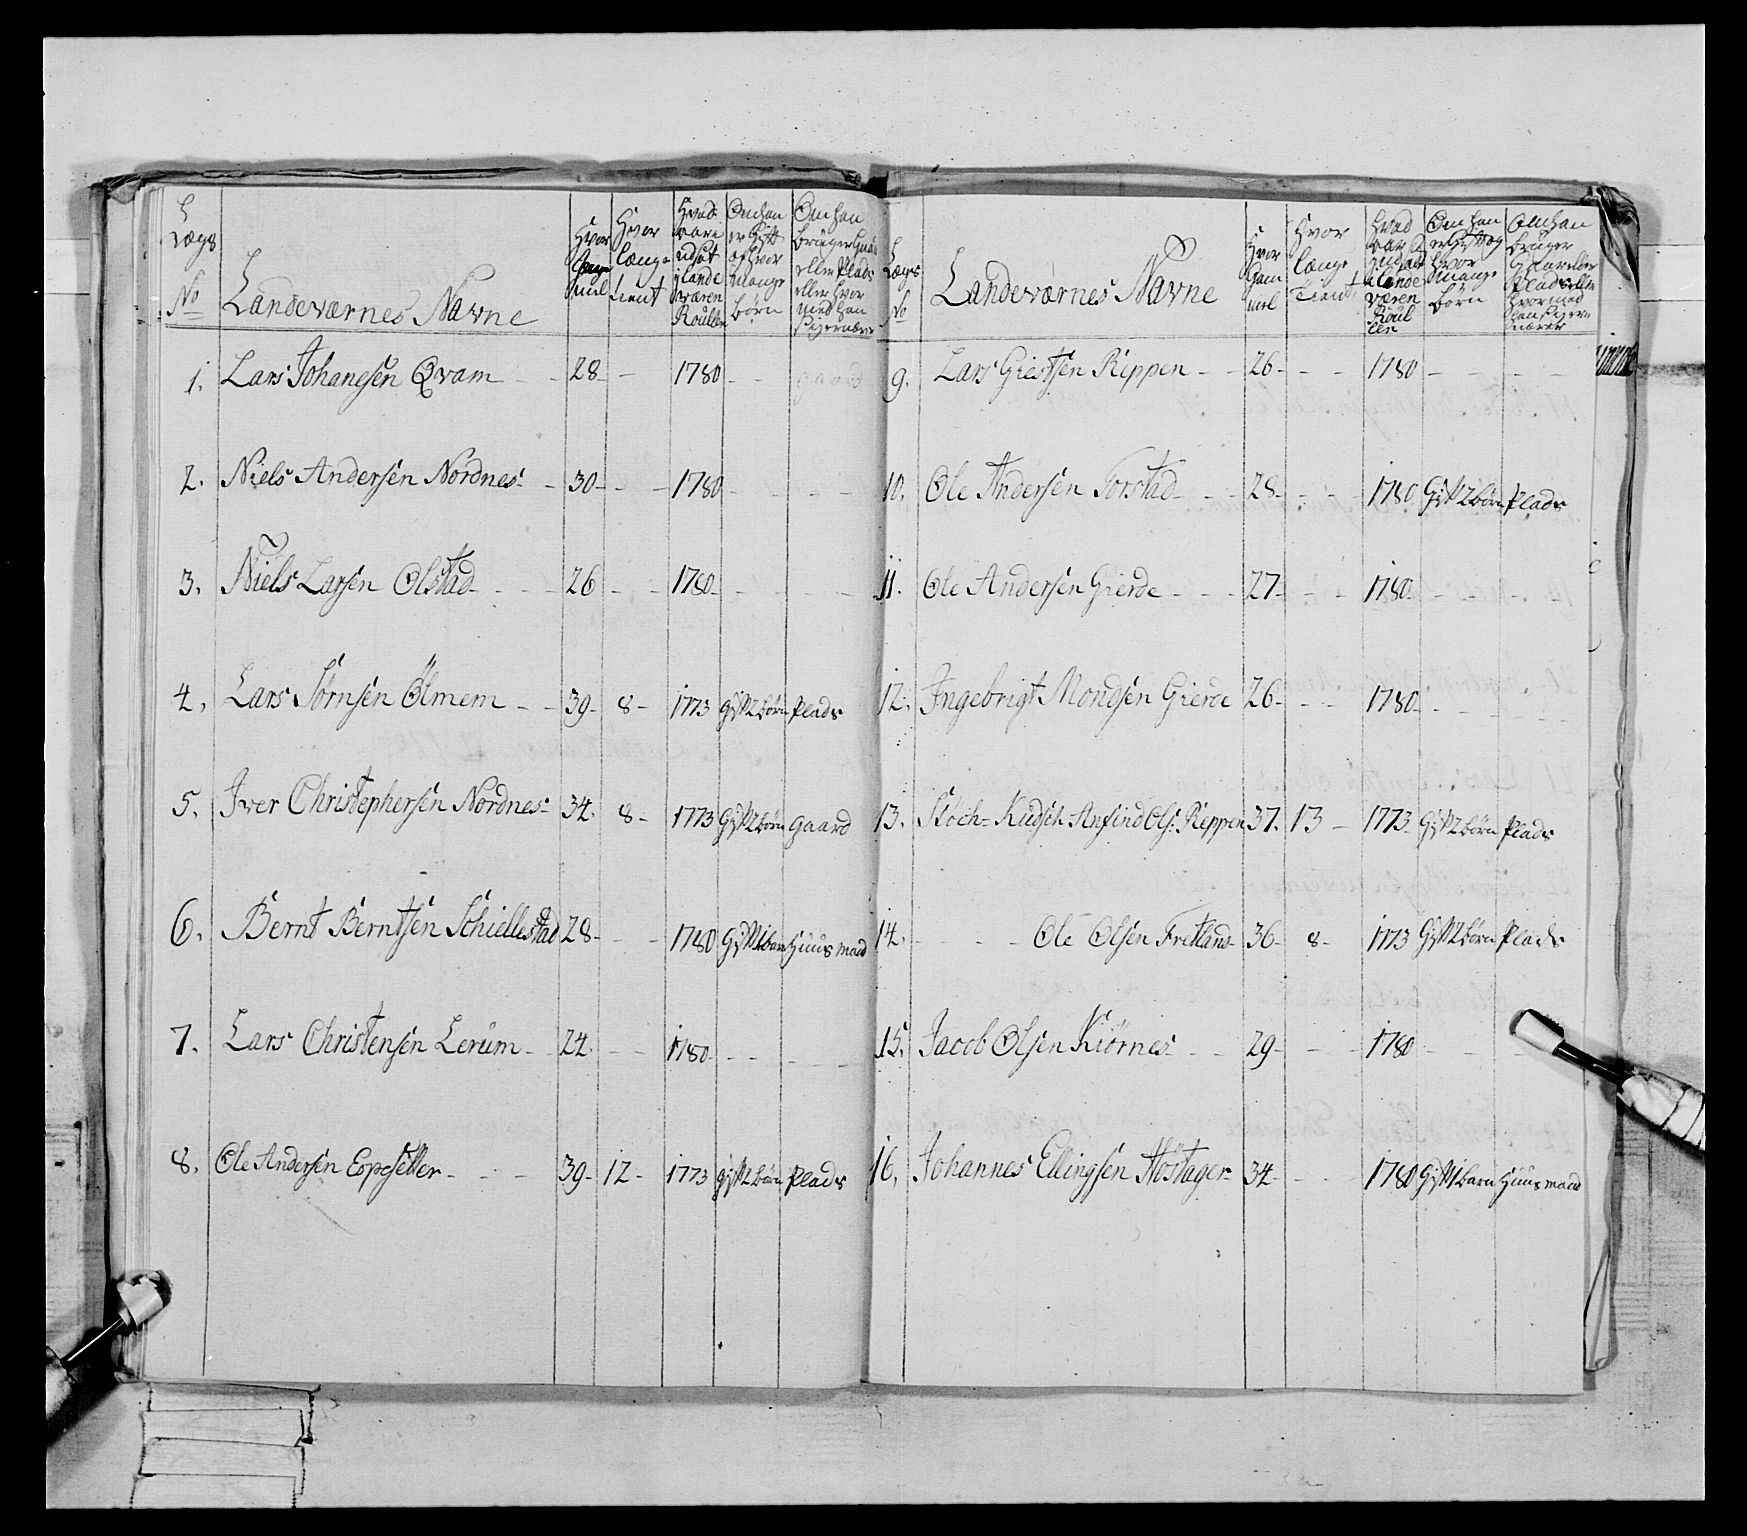 Lægs No
Landeværnes Navne
Hvor gammel
Hvor længe tient
Hvad Aar indsat i Lande væren Roullen
Om han er gift og hvor mange børn
Om han bruger gaard eller Plads eller hvor med han sig ernærer
1. Lars Johanesen Qvam - - 28 - - 1780 - - gaard
2. Niels Andersen Nordnes - - 30 - - - 1780 - - - -
3. Niels Larsen Olstad - - - 26 - - 1780 - - - -
4. Lars Sørnsen Ølmem - - 39 - 8 - 1773 Gift 2 børn Plads
5. Iver Christephersen Nordnes - 34. 8 - 1773 Gift 2 børn gaard
6. Bernt Berntsen Schiellestad 28 - - - 1780 Gift 1 barn Huusmand
7. Lars Christensen Lerum - 24. - - 1780 - - - -
8. Ole Andersen Eopesetter - - - 39 - 12 - 1773 gift 2 børn Plads
Lægs No
Landeværnes Navne
Hvor gam mel
Hvor længe tient
Hvad Aar indsat i Lande væren Roul len
Om han er gift og hvor mange børn
Om han bruger gaard eller Plads eller hvor med han sig er nærer
9. Lars Giestsen Rippen - - 26 - - - 1780 - - - -
10. Ole Andersen Torstad - - - 28 - - - 1780 Gift 2 børn Plads
11. Ole Andersen Gierde - - - 27 - - - 1780 - - - -
12. Ingebrigt Mondsen Gierde 26 - - - 1780 - - - -
13. Støch-Kudsk Ansind Ols: Reppen 37. 13 - 1773 - Gift 2 børn Plads
14. - - - Ole Olsen Fretland - 36 - 8 - 1773 Gift 2 børn Plads
15. Jacob Olsen Kiørnes - - 29 - - - 1780 - - -
16. Johannes Ellingsen Nøstager - 34 - - - 1780 Gift 1 barn Huusmand